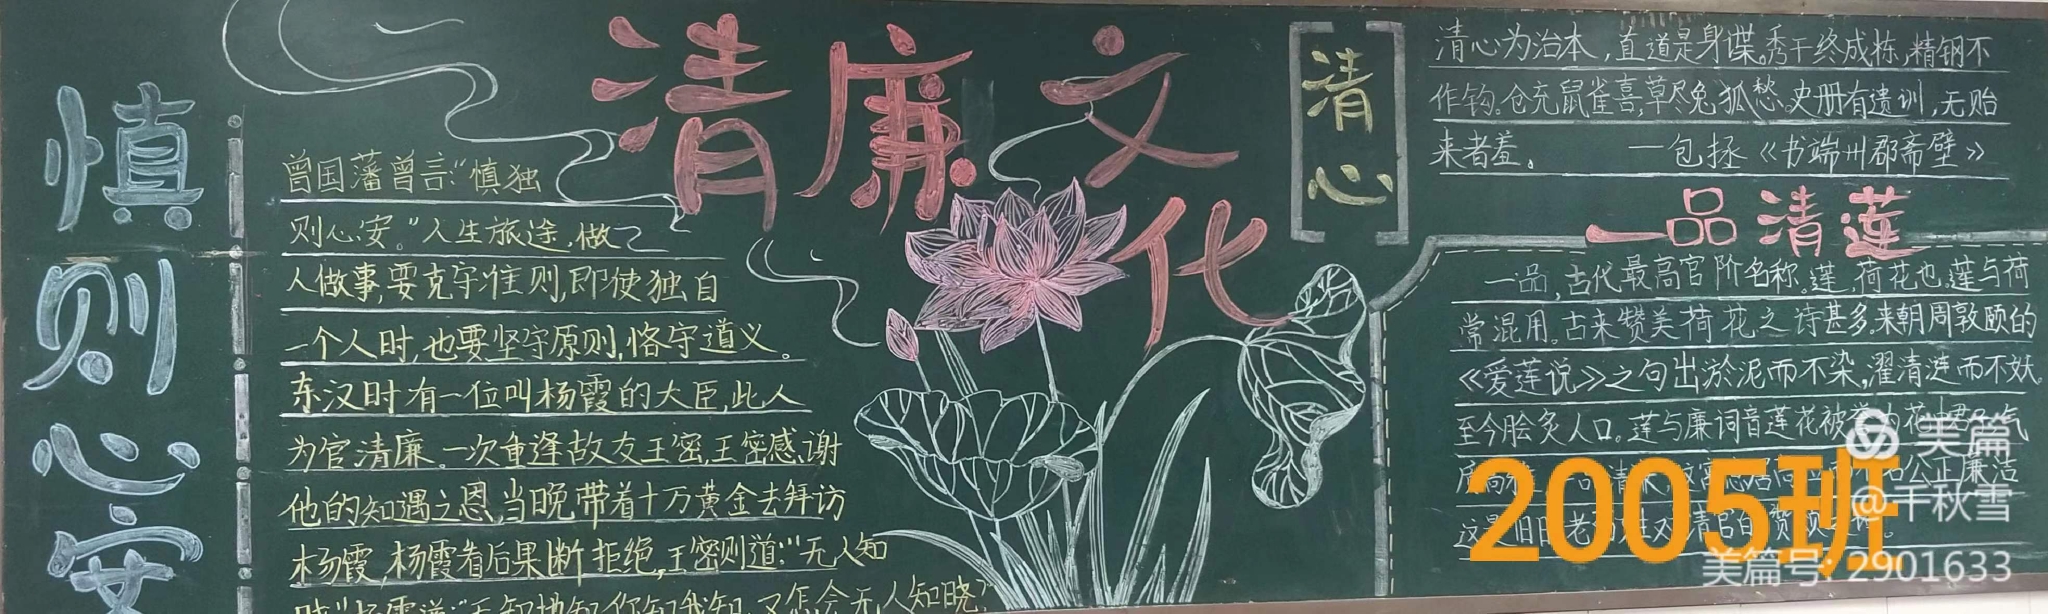 慎则心安
清廉文化
曾国藩曾言:“慎独
则心安。”人生旅途,做
人做事,要克守准则,即使独自
一个人时,也要坚守原则,恪守道义。
东汉时有一位叫杨霞的大臣,此人
为官清廉。一次重逢故友王密,王密感谢
他的知遇之恩,当晚带着十万黄金去拜访
杨霞,杨霞看后果断拒绝,王密则道:“无人知
清心
清心为治本,直道是身谍。秀干终成栋,精钢不
作钩。仓充鼠雀喜,草尽兔狐愁。史册有遗训,无贻
来者羞。 —包拯《书端州郡斋壁》
一品清莲
一品,古代最高官阶名称。莲,荷花也。莲与荷
常混用。古来赞美荷花之诗甚多,来朝周敦颐的
《爱莲说》之句出淤泥而不染,濯清涟而不妖。
至今脍炙人口。莲与廉词音莲花被
公正廉洁
2005班
美篇
@千秋雪
美篇号: 2901633